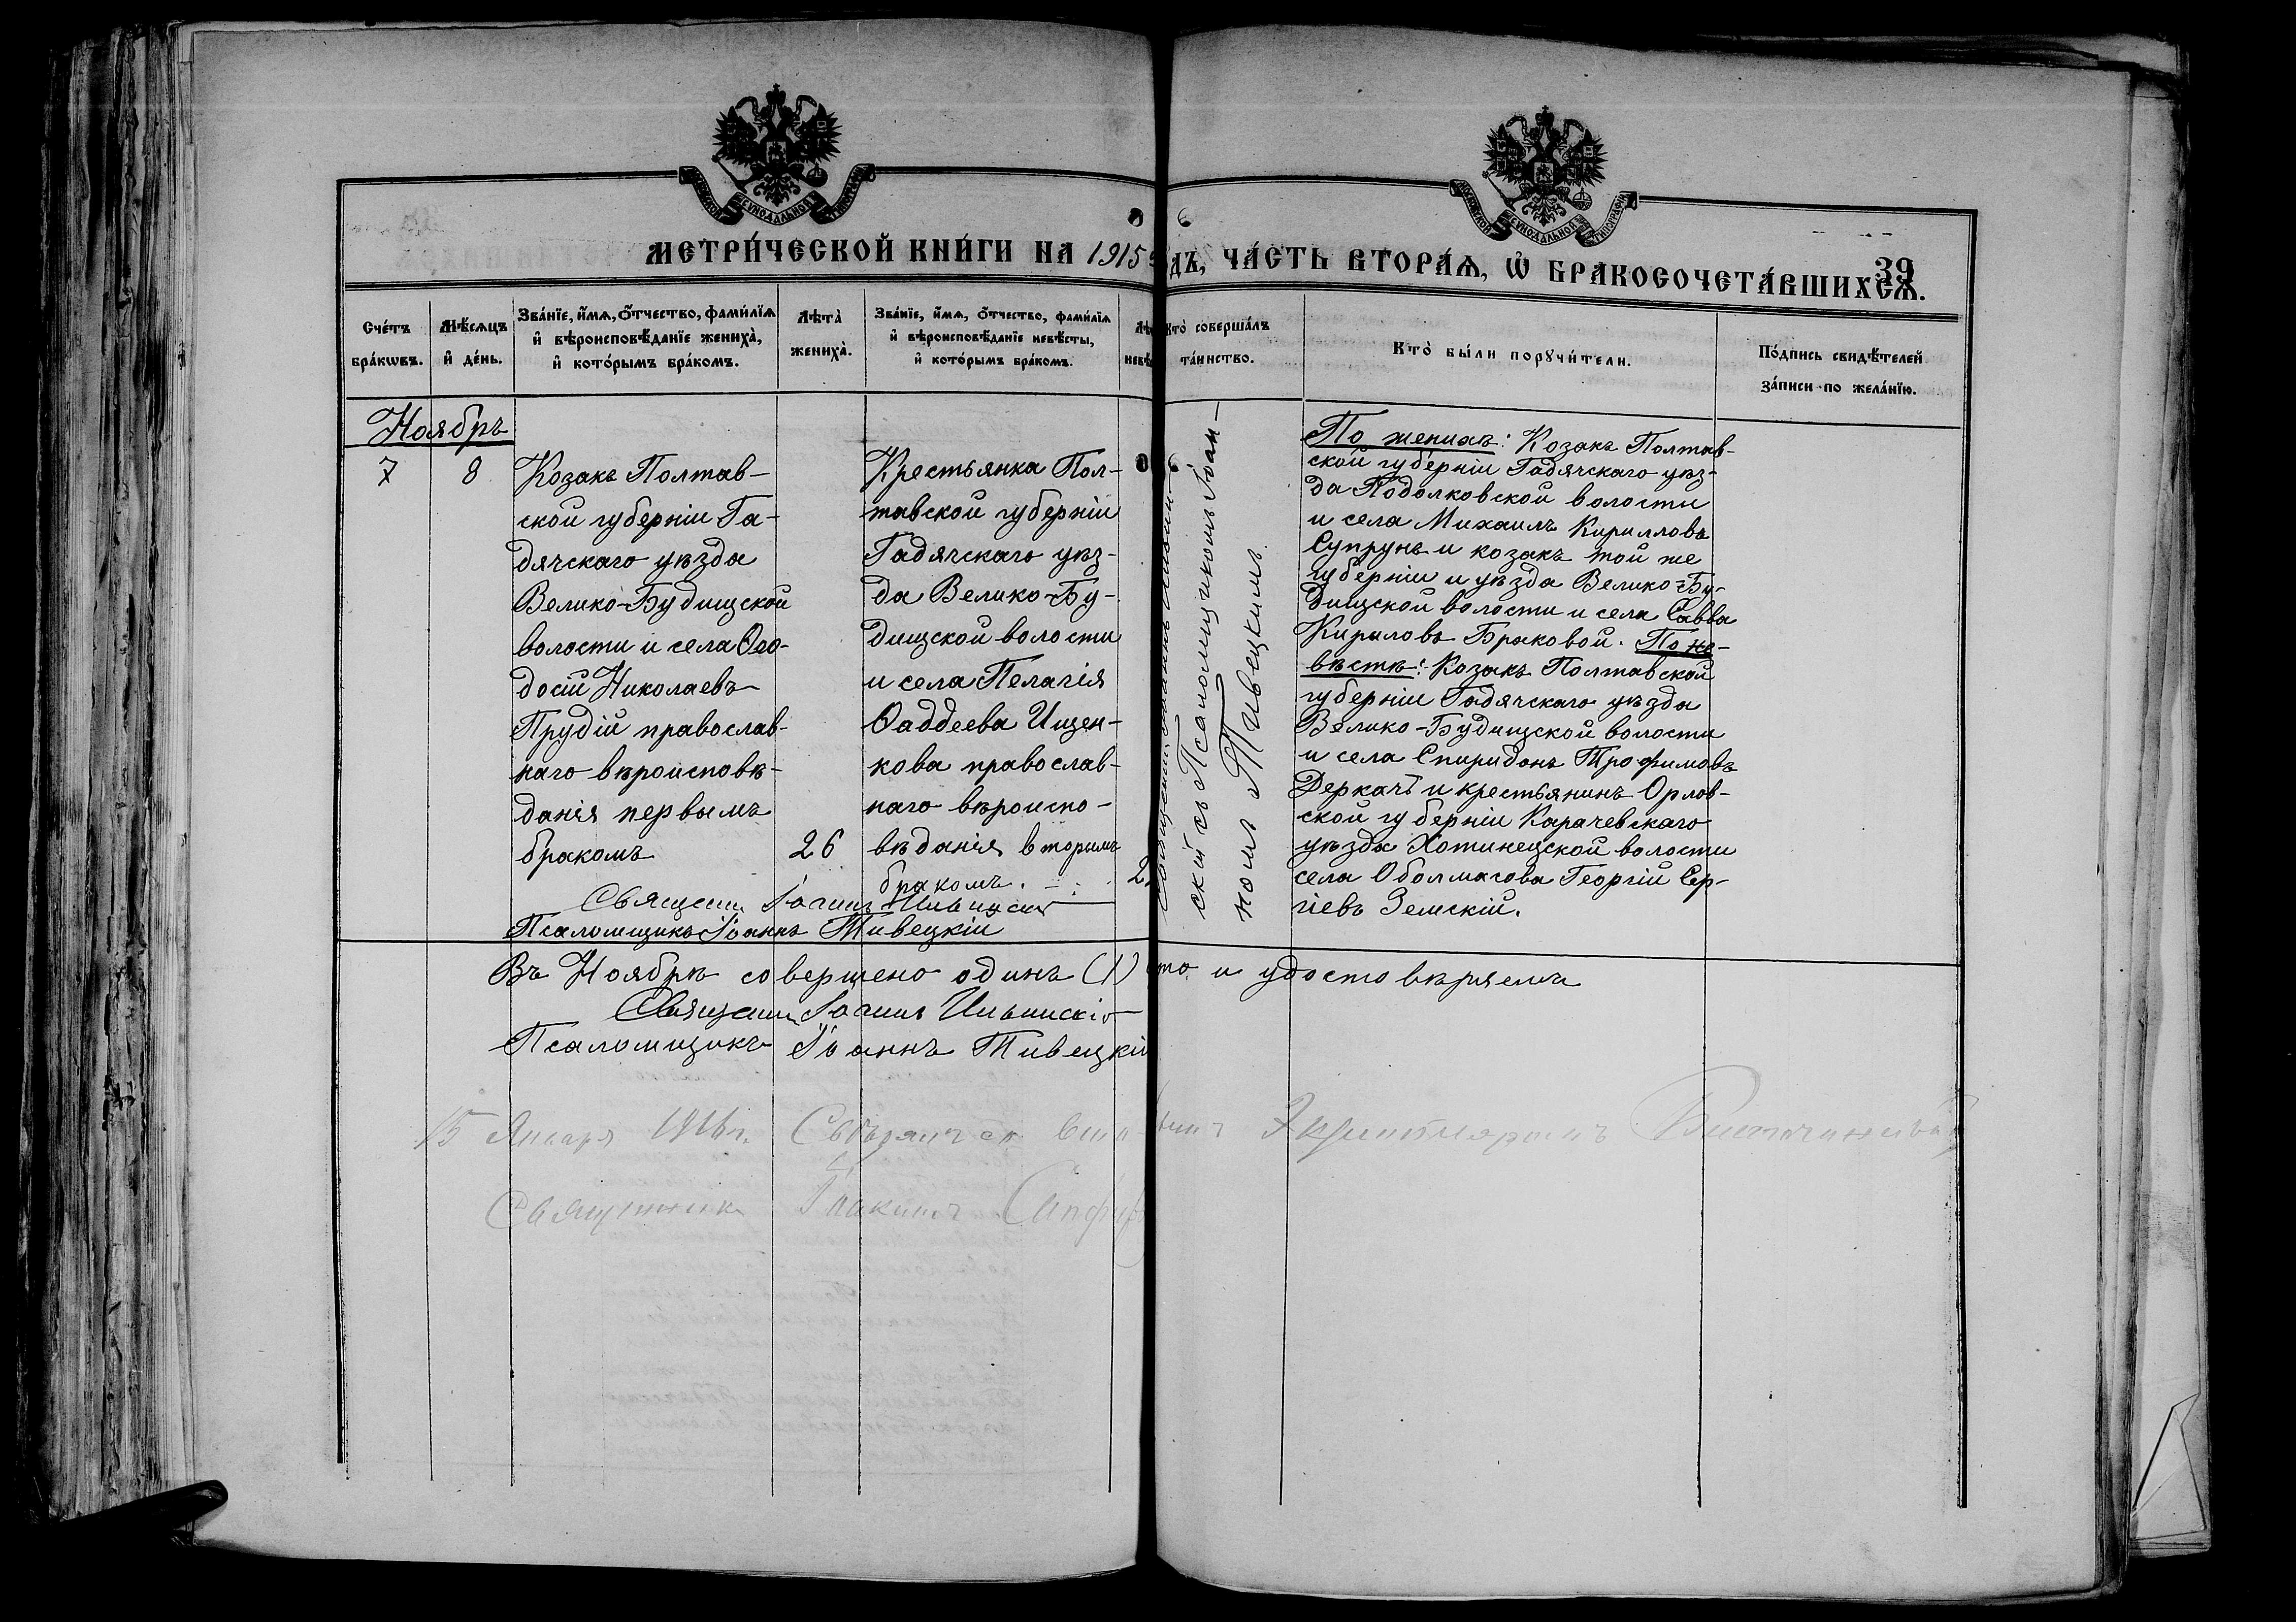 МЕТРИ́ЧЕСКОЙ КНИ́ГИ НА 1915
ДЪ, ЧА́СТЬ ВТОРА́Ѧ, Ѽ БРАКОСОЧЕТА́ВШИХСѦ.
39
Сче́тъ бра́кѡвъ.
Мѣ́сѧцъ и҆ де́нь.
Зва́нїе, и҆́мѧ, ѻ҆́тчество, фами́лїѧ и҆ вѣроисповѣ́данїе жениха̀, и҆ кото́рымъ бра́комъ.
Лѣта̀ жениха̀.
Зва́нїе, и҆́мѧ, ѻ҆́тчество, фами́лїѧ и҆ вѣроисповѣ́данїе невѣ́сты, и҆ кото́рымъ бра́комъ.
Кто̀ соверша́лъ та́инство.
Кто̀ бы́ли порꙋчи́тели.
По́дпись свидѣ́телей за́писи по жела́нїю.
Ноябрь
7
8
Козакъ Полтав-
ской губерніи Га-
дячскаго уѣзда
Велико-Будищской
волости и села Ѳео-
досій Николаевъ
Прудій православ-
наго вѣроисповѣ-
данія первымъ
бракомъ
26
Крестьянка Пол-
тавской губерніи
Гадячскаго уѣз-
да Велико-Бу-
дищской волости
и села Пелагія
Ѳаддеева Ищен-
кова православ-
наго вѣроиспо-
вѣданія вторымъ
бракомъ.
2
скій съ Псаломщикомъ Іоан-
номъ Тивецкимъ.
По женихѣ: Козакъ Полтав-
ской губерніи Гадячскаго уѣз-
да Подолковской волости
и села Михаилъ Кирилловъ
Супрунъ и козакъ той же
губерніи и уѣзда Велико-Бу-
дищской волости и села Савва
Кириловъ Браковой. По не-
вѣстѣ: Козакъ Полтавской
губерніи Гадячскаго уѣзда
Велико-Будищской волости
и села Спиридонъ Трофимовъ
Деркачъ и крестьянинъ Орлов-
ской губерніи Карачевскаго
уѣзда Хотинецской волости
села Оболмасова Георгій Сер-
гіевъ Земскій.
Священ. Іоаннъ Ильинскій
Псаломщикъ Іоаннъ Тивецкій
Въ Ноябрѣ совершено одинъ (1) что и удостовѣряемъ
Священ. Іоаннъ Ильинскій
Псаломщикъ Іоаннъ Тивецкій
15 Января 1916 г.
Священникъ Іоакимъ